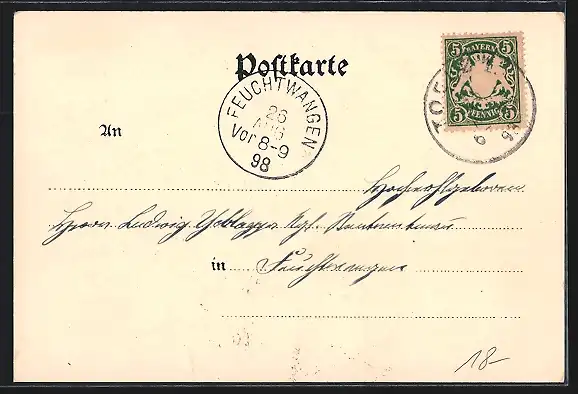 Postkarte
5 BAYERN 5
5 PFENNIG 5
FEUCHTWANGEN
26
AUG
Vor 8-9
98
An
Hochwohlgeboren
Herrn Ludwig Kgl.
in Feuchtwangen
18-